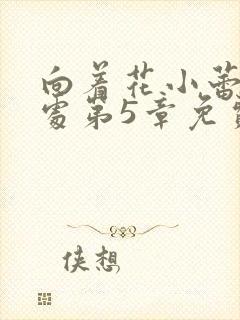 向着花小蕾
处第5章免费
侠想